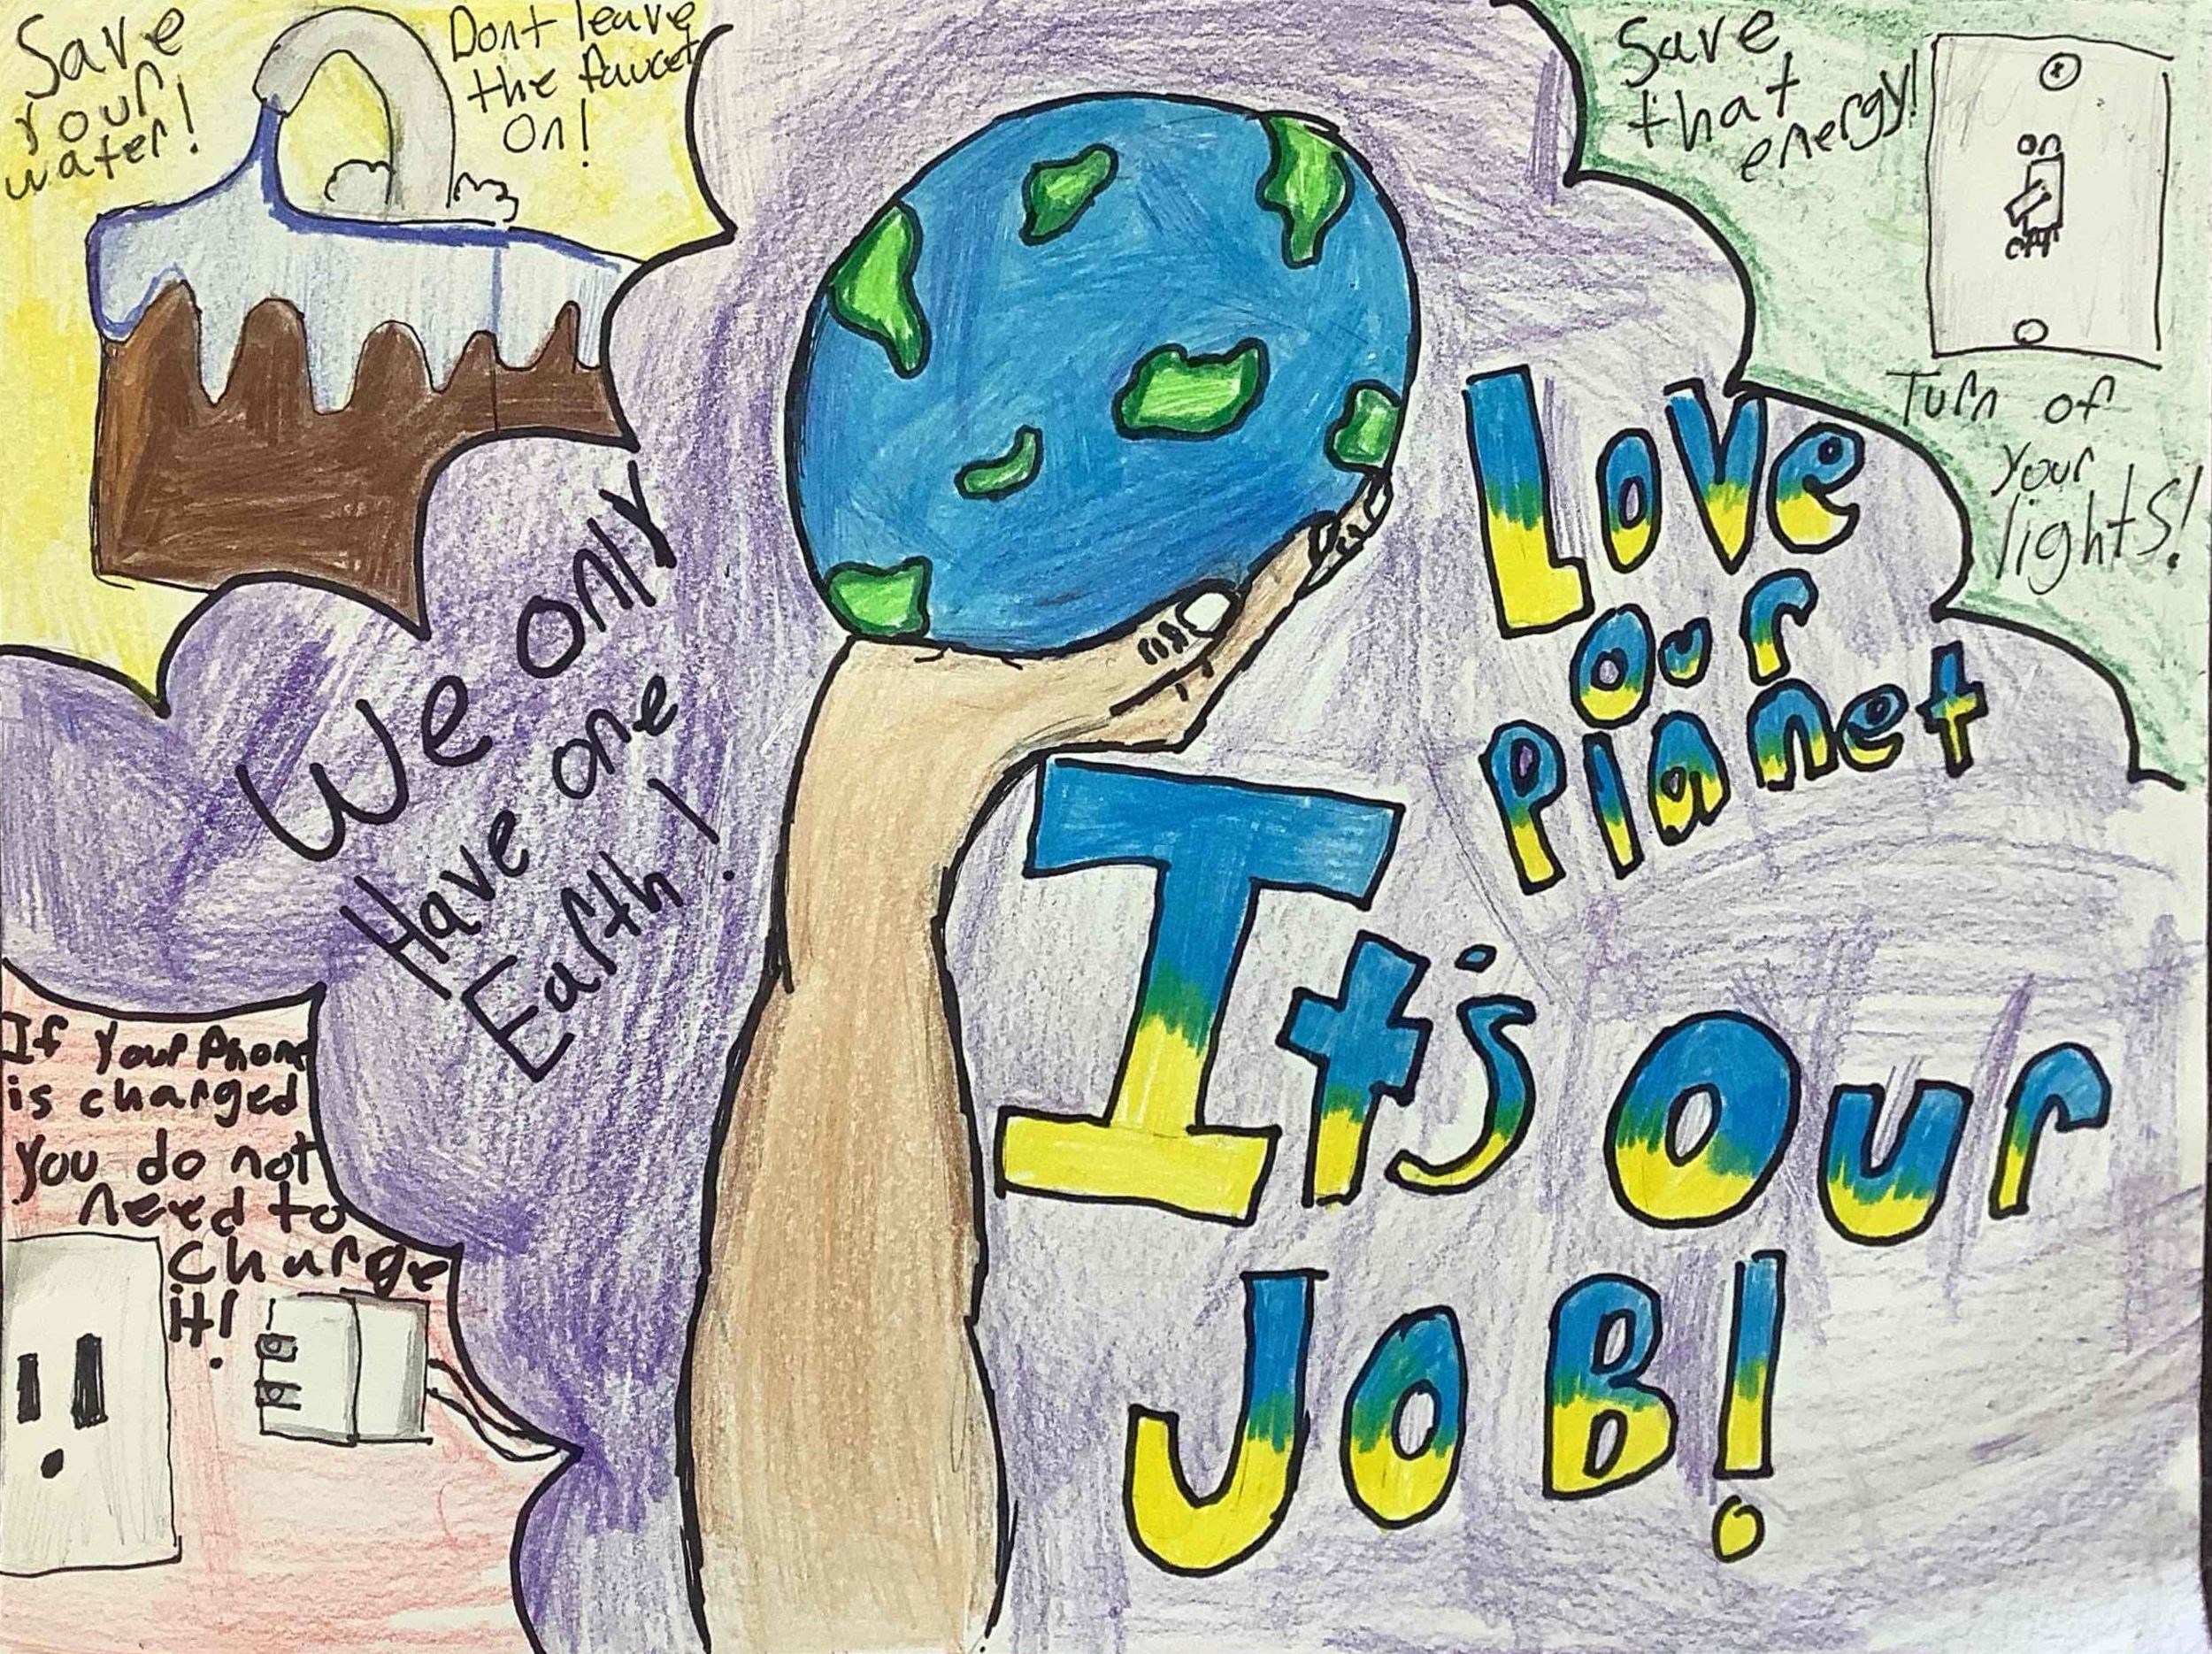 Save
your
water!
Dont leave
the faucet
on!
Save
that
energy!
on
off
Turn of
your
lights!
We only
Have one
Earth!
Love
our
Planet
It's our
JOB!
If your Phone
is charged
you do not
need to
charge
it!